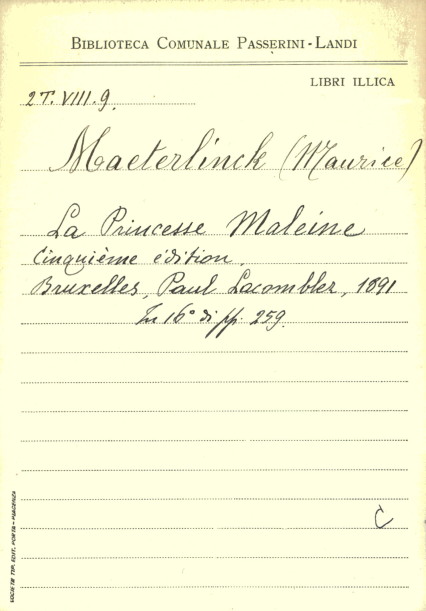 BIBLIOTECA COMUNALE PASSERINI-LANDI
LIBRI ILLICA
2T.VIII.9.
Maeterlinck (Maurice)
La Princesse Maleine
Cinquième édition.
Bruxelles, Paul Lacombler, 1891
In 16° di pp. 259.
C
SOCIETÀ TIP. EDIT. PORTA - PIACENZA